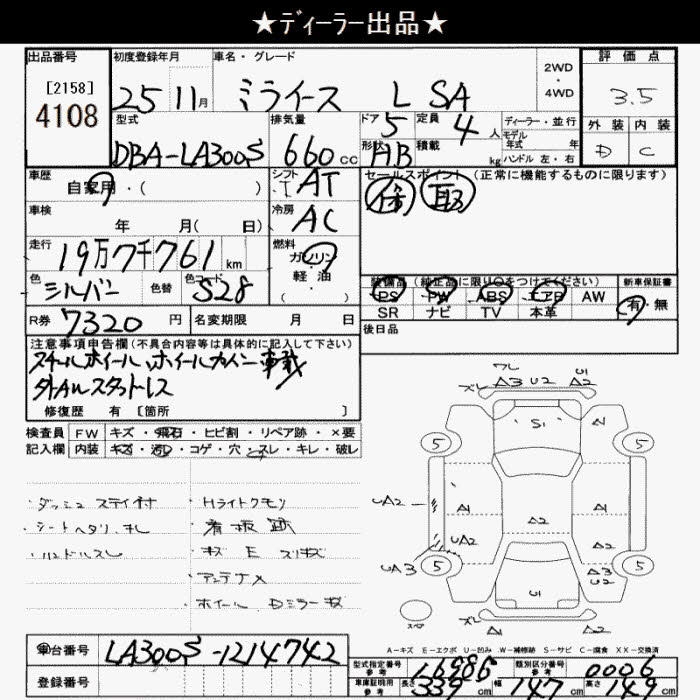 ★ディーラー出品★
出品番号
[2158]
4108
初度登録年月
25 11月
車名・グレード
ミライース L SA
2WD
・
4WD
評価点
3.5
外装 内装
D C
型式
DBA-LA300S
排気量
660cc
ドア 5
定員 4人
形状 HB
積載 kg
ディーラー・並行
モデル
年式 年
ハンドル 左・右
車歴
自家用・( )
シフト
AT
セールスポイント(正常に機能するものに限ります)
保 取
車検
年 月( 日)
冷房
AC
走行
19万7千761km
燃料
ガソリン
軽・油
( )
色
シルバー
色替
色コード
S28
装備品(純正品に限り○をつけてください)
PS PW ABS エアB AW
SR ナビ TV 本革
新車保証書
有・無
R券 7320円
名変期限 月 日
後日品
注意事項申告欄(不具合内容等は具体的に記入して下さい)
スチールホイール、ホイールカバー車載
外Aルスタットレス
修復歴 有 [箇所 ]
検査員
記入欄
FW キズ・飛石・ヒビ割・リペア跡・×要
内装 キズ・汚レ・コゲ・穴・スレ・キレ・破レ
・ダッシュ ステイ付
・シートヘタリ、キレ
・ハンドルスレ
・Hライトクモリ
・看板跡
・キズ E スリキズ
・アンテナ×
・ホイール Dミラーキズ
ズレ A3 U2 U1 A2
S1 A1
5 5
UA2 A1 A2 A1
UA2 A2
UA3 5 5 A3 U2
U1
ズレ A1 A1
A-キズ E-エクボ U-凹み W-補修跡 S-サビ C-腐食 XX-交換済
車台番号 LA300S-1214742
登録番号
型式指定番号
参考
16986
類別区分番号
参考
0006
車庫証明用
参考
長さ 339cm
幅 147cm
高さ 149cm